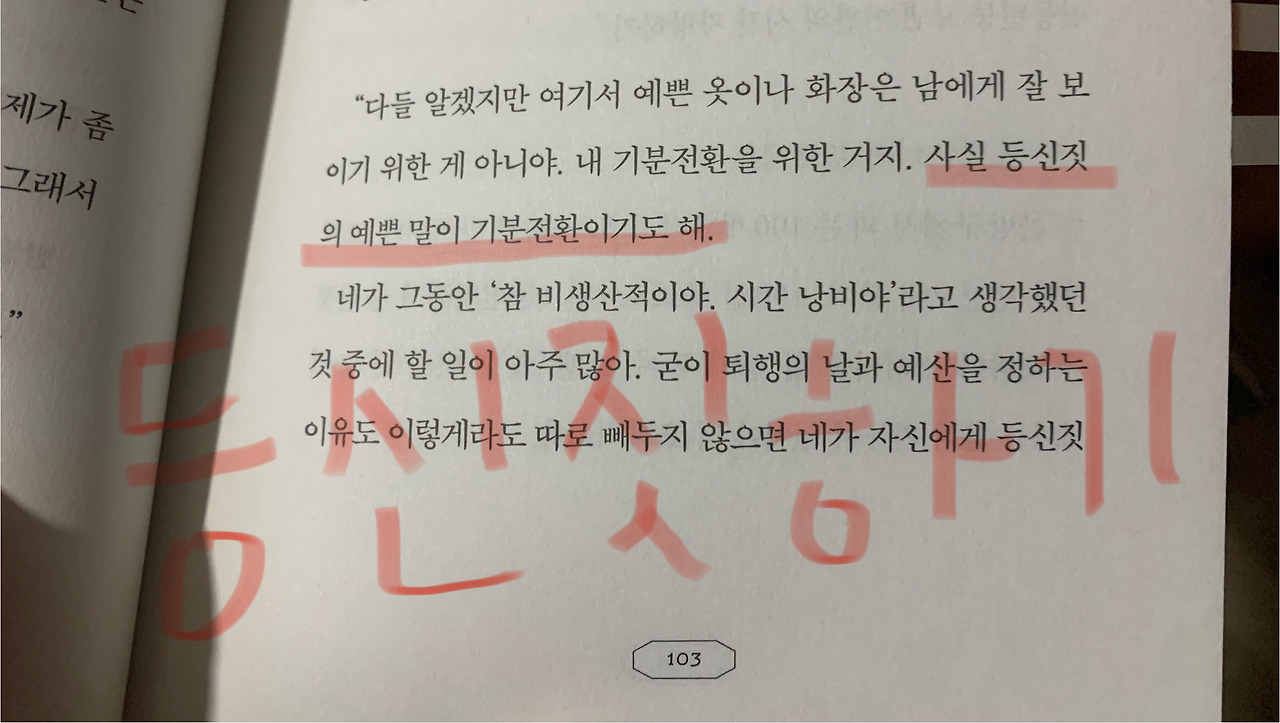 제가 좀
그래서
”
“다들 알겠지만 여기서 예쁜 옷이나 화장은 남에게 잘 보
이기 위한 게 아니야. 내 기분전환을 위한 거지. 사실 등신짓
의 예쁜 말이 기분전환이기도 해.
네가 그동안 ‘참 비생산적이야. 시간 낭비야’라고 생각했던
것 중에 할 일이 아주 많아. 굳이 퇴행의 날과 예산을 정하는
이유도 이렇게라도 따로 빼두지 않으면 네가 자신에게 등신짓
등신짓하기
103